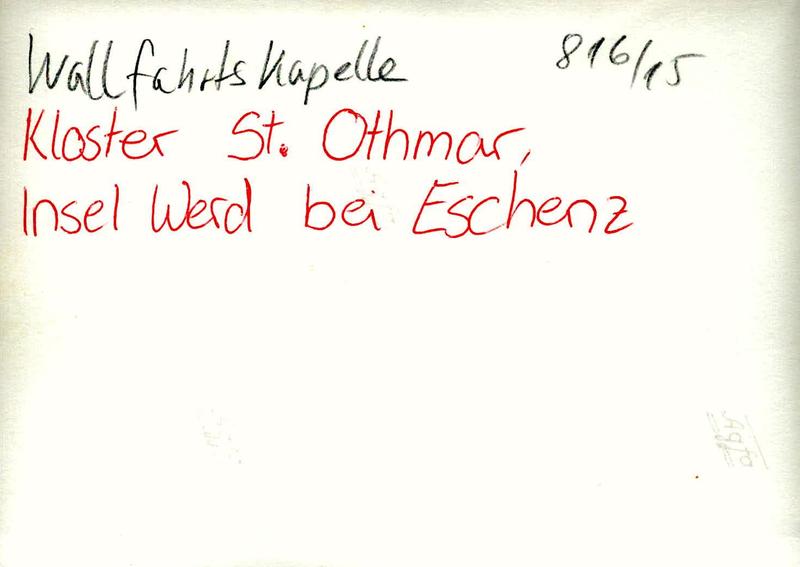 Wallfahrtskapelle 816/15
Kloster St. Othmar,
Insel Werd bei Eschenz